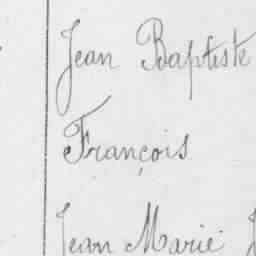 Jean Baptiste
François
Jean Marie